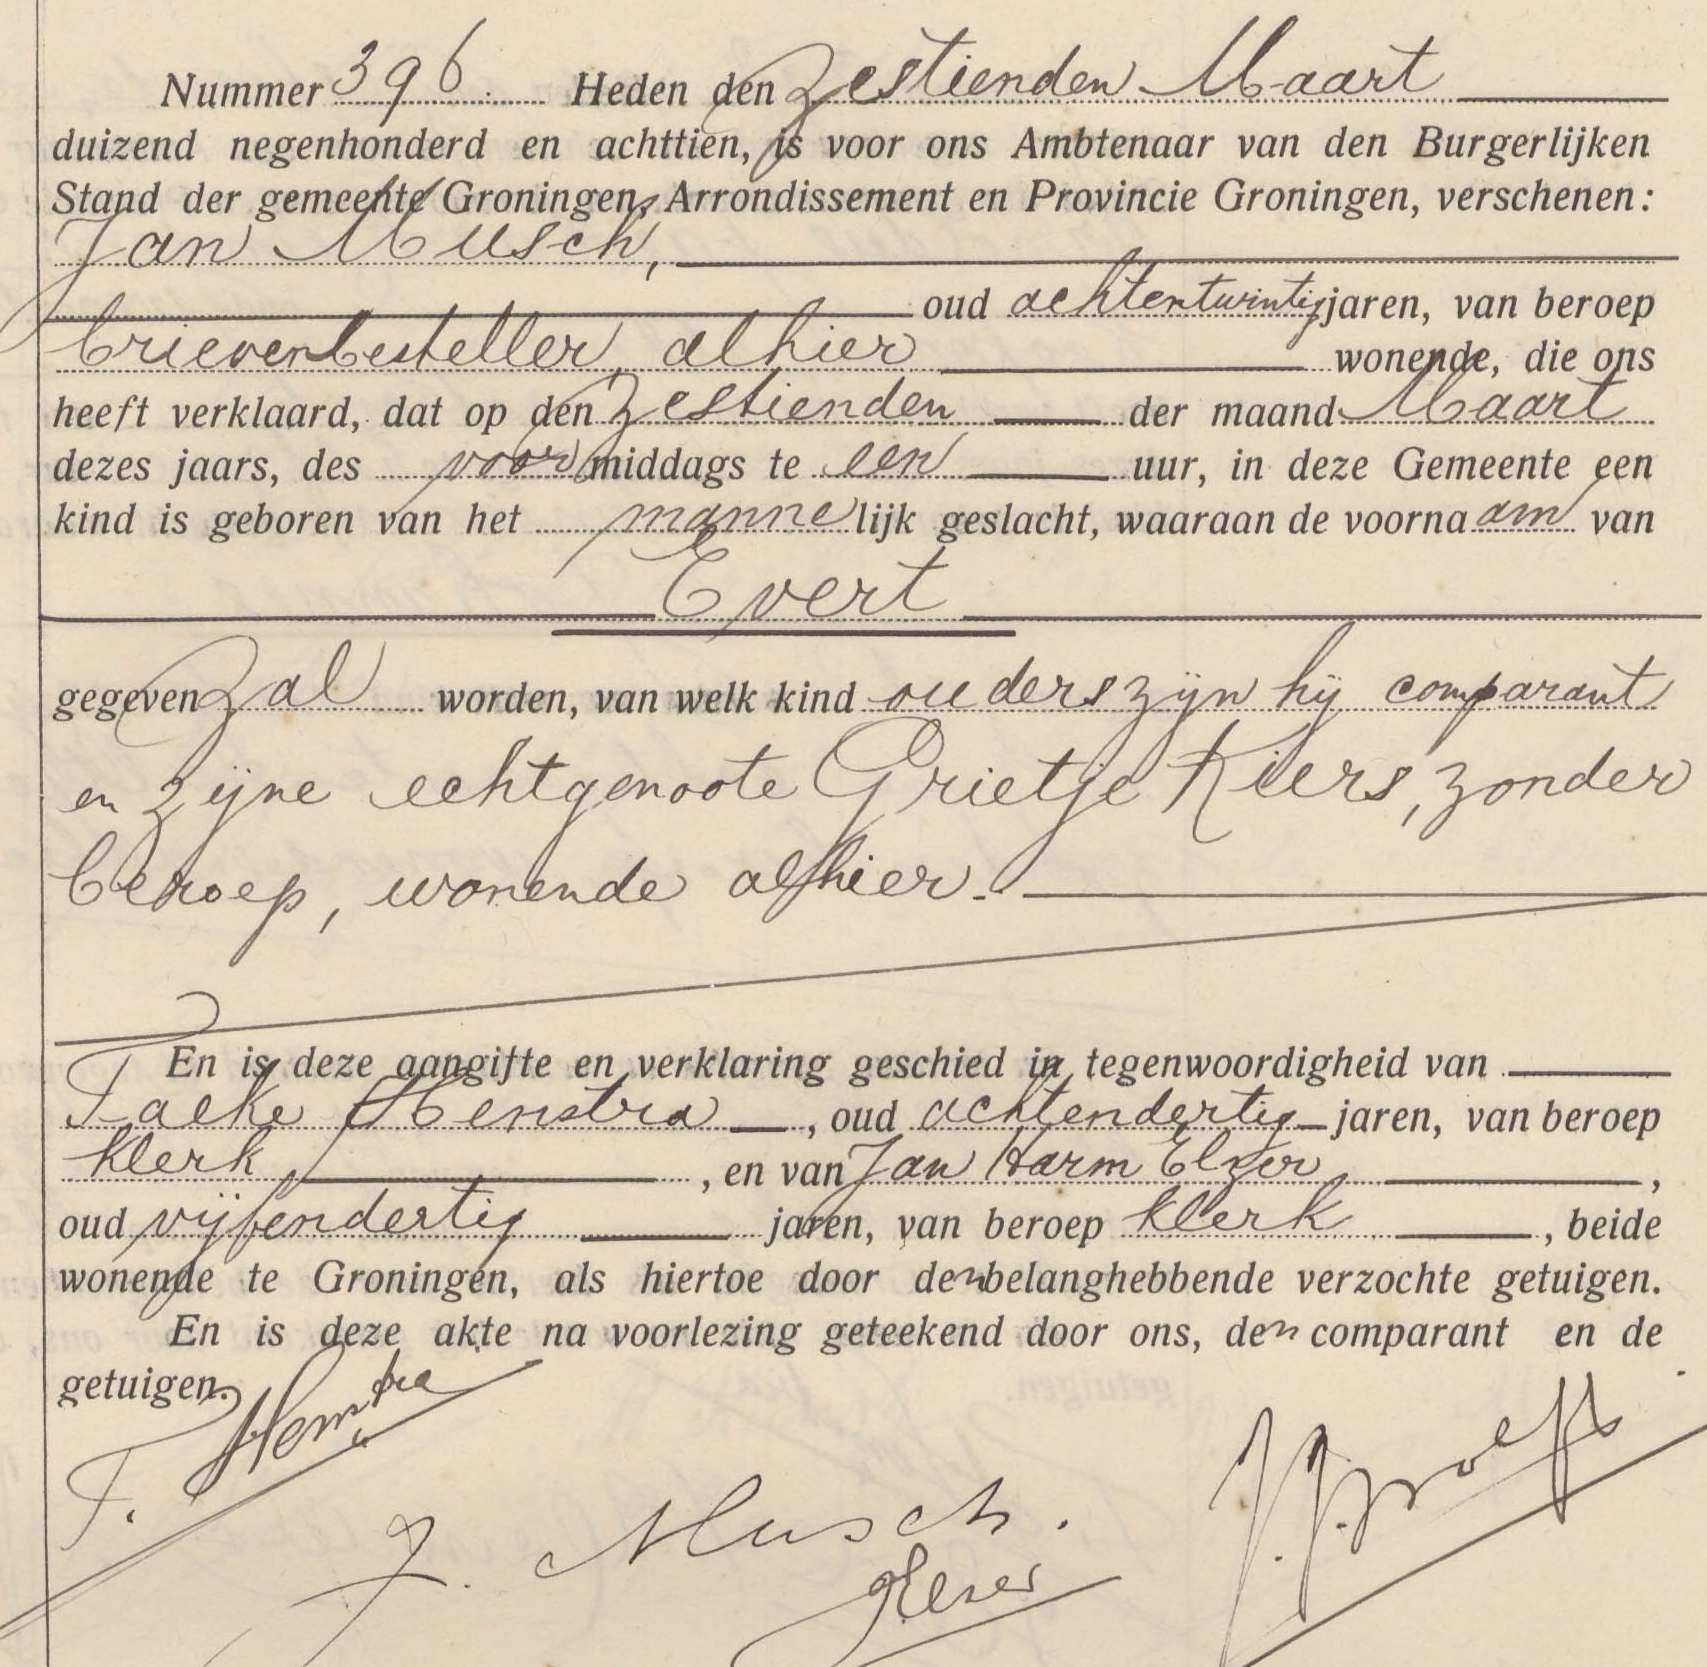 Nummer 396. Heden den zestienden Maart
duizend negenhonderd en achttien, is voor ons Ambtenaar van den Burgerlijken
Stand der gemeente Groningen, Arrondissement en Provincie Groningen, verschenen:
Jan Musch,
oud achtentwintig jaren, van beroep
brievenbesteller, alhier wonende, die ons
heeft verklaard, dat op den zestienden der maand Maart
dezes jaars, des voormiddags te een uur, in deze Gemeente een
kind is geboren van het mannelijk geslacht, waaraan de voornaam van
Evert
gegeven zal worden, van welk kind ouders zijn hij comparant
en zijne echtgenoote Grietje Kiers, zonder
beroep, wonende alhier.
En is deze aangifte en verklaring geschied in tegenwoordigheid van
Taeke Henstra, oud achtendertig jaren, van beroep
klerk, en van Jan Harm Elzer,
oud vijfendertig jaren, van beroep klerk, beide
wonende te Groningen, als hiertoe door den belanghebbende verzochte getuigen.
En is deze akte na voorlezing geteekend door ons, den comparant en de
getuigen.
T. Henstra
J. Musch.